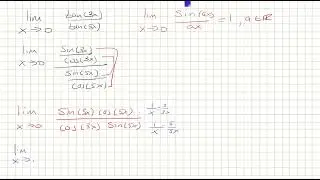 lim x→0 tan(3x)/tan(5x)    lim x→0 sin(ax)/ax = 1, a ∈ ℝ
lim x→0 (sin(3x)/cos(3x))/(sin(5x)/cos(5x))
lim x→0 sin(3x) cos(5x)/cos(3x) sin(5x)
lim x→